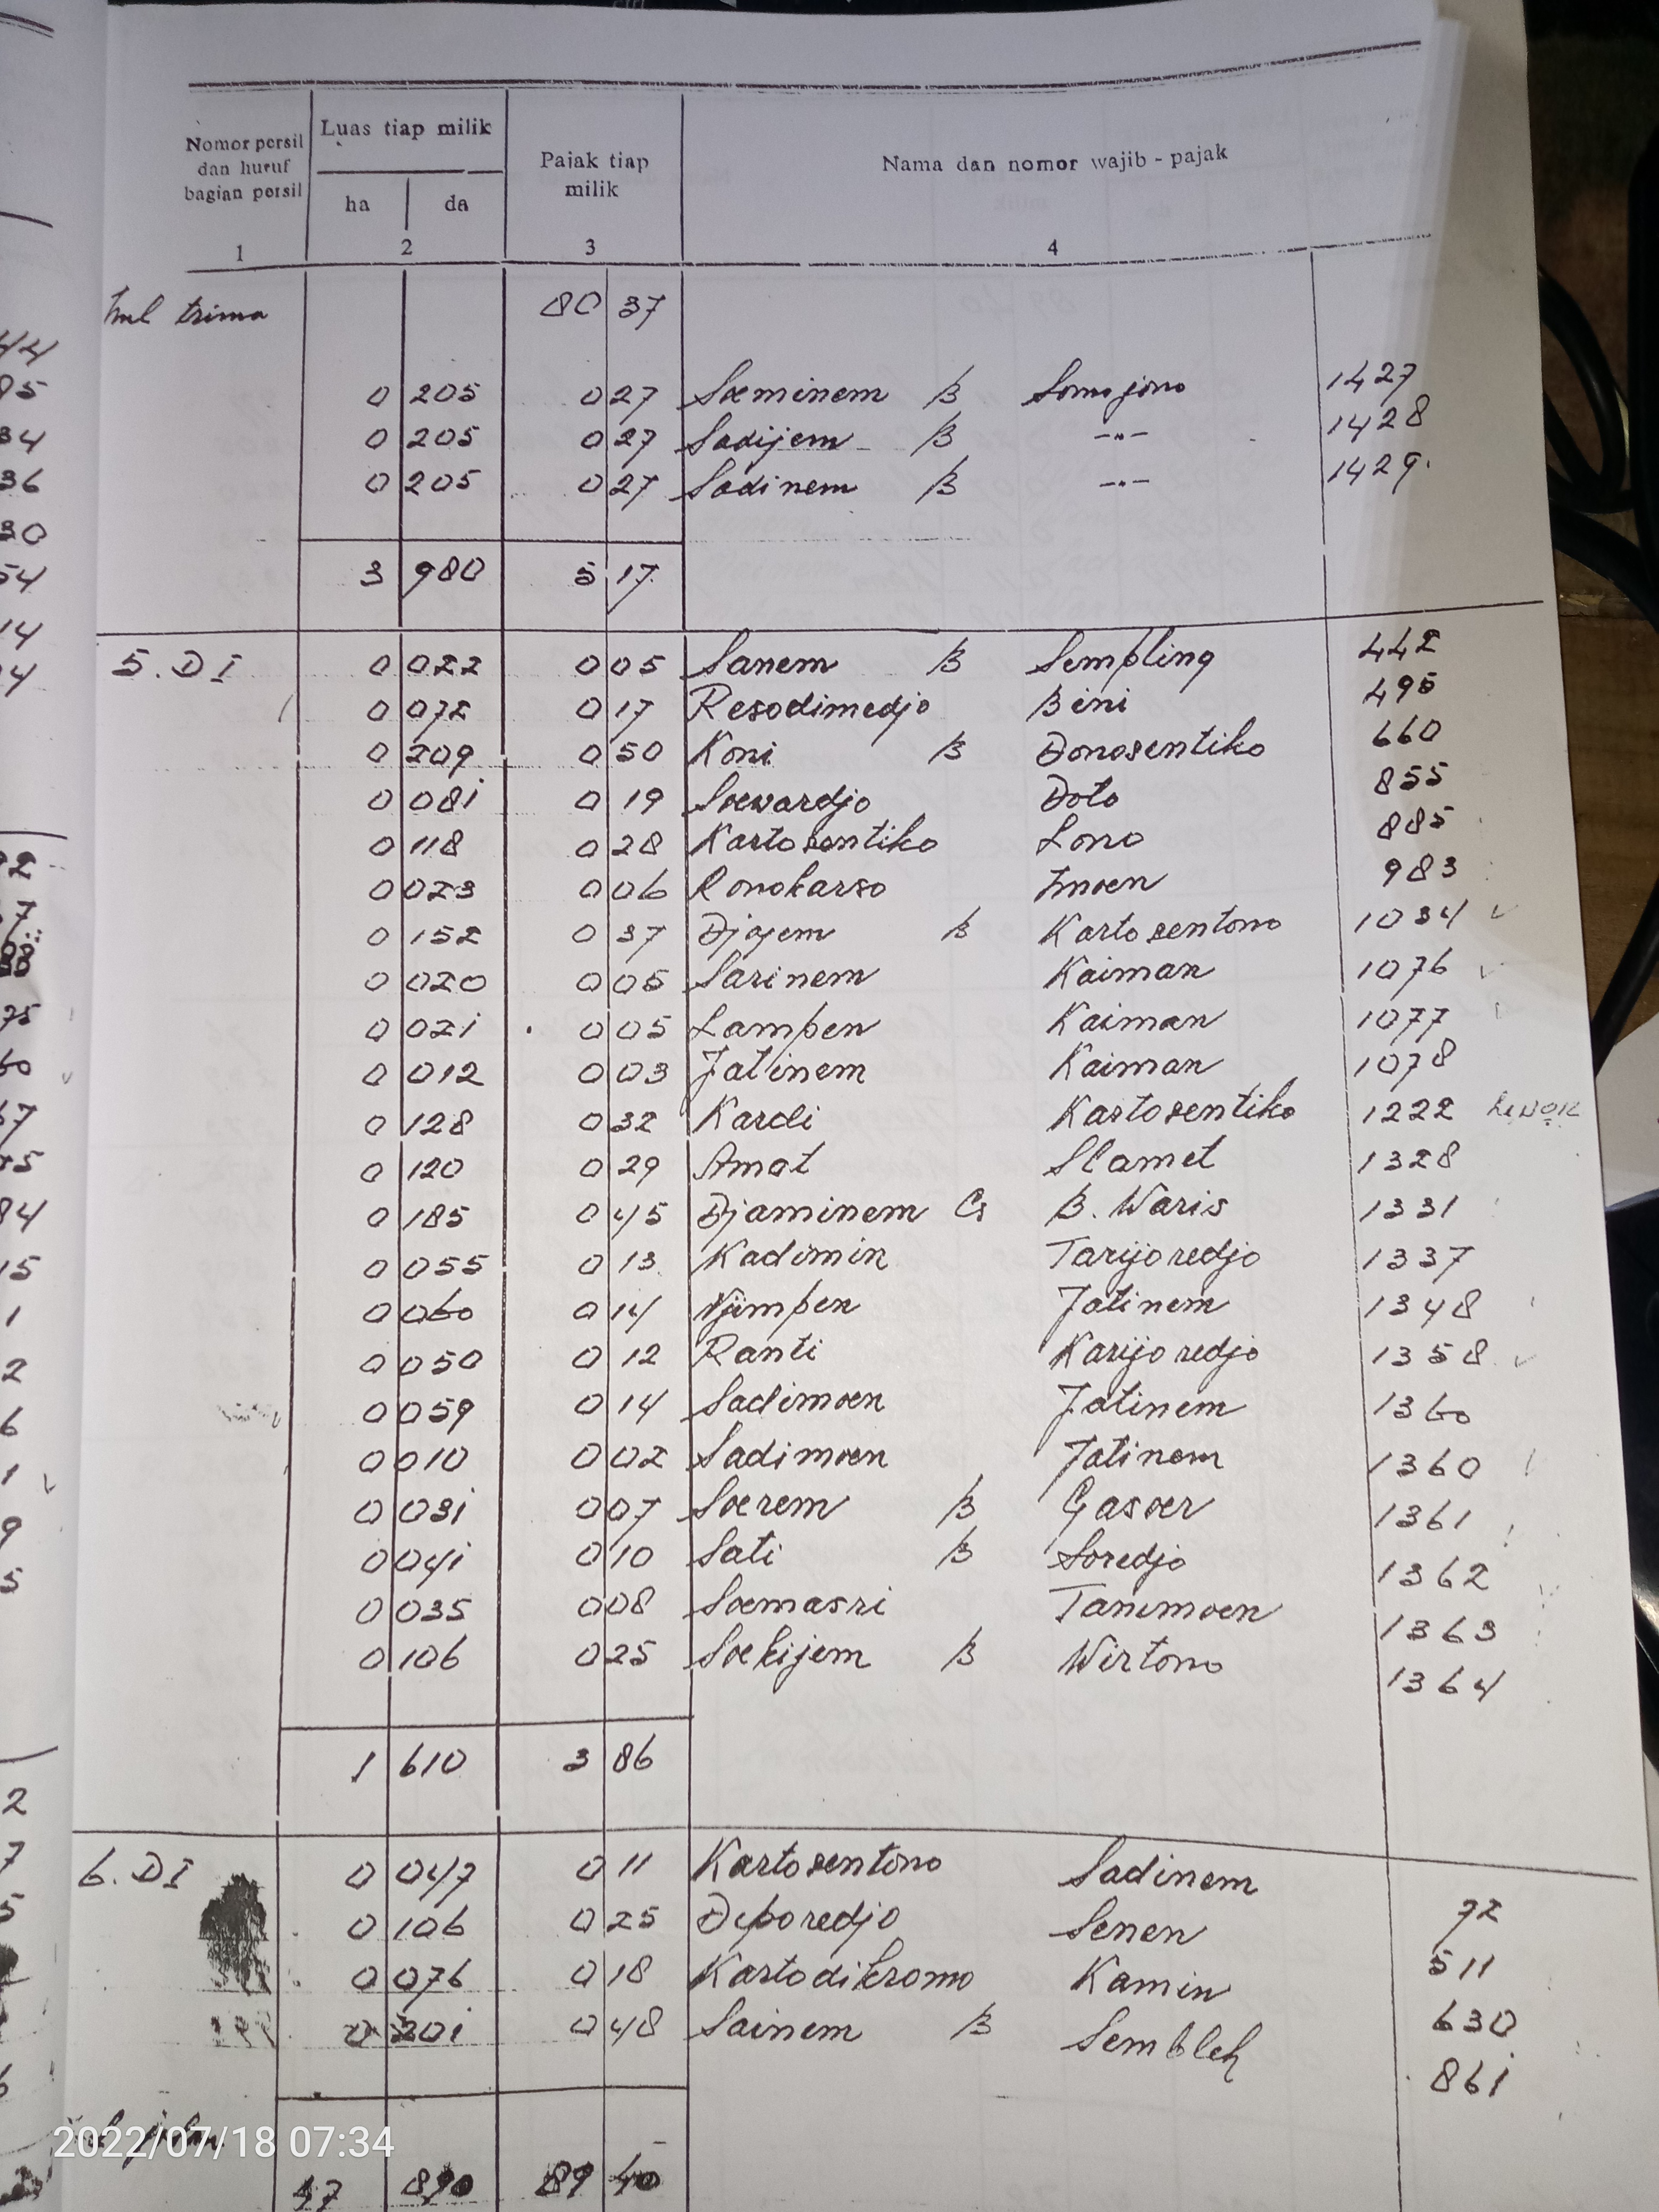 Nomor persil dan huruf bagian persil
Luas tiap milik
ha da
Pajak tiap milik
Nama dan nomor wajib - pajak
1 2 3 4
trima 80 37
0 205 0 27 Soeminem B Somojono 1427
0 205 0 27 Sadijem B -"- 1428
0 205 0 27 Sadinem B -"- 1429.
3 980 5 17
5. D I 0 022 0 05 Sanem B Sempling 442
0 072 0 17 Resodimedjo Bini 495
0 209 0 50 Koni B Donosentiko 660
0 081 0 19 Soewardjo Doto 855
0 118 0 28 Kartosentiko Lono 885
0 023 0 06 Ronokarso 983
0 152 0 37 Djojem B Kartosentono 1034
0 020 0 05 Sarinem Kaiman 1076
0 021 0 05 Lampen Kaiman 1077
0 012 0 03 Jatinem Kaiman 1078
0 128 0 32 Kardi Kartosentiko 1222
0 120 0 29 Amat Slamet 1328
0 185 0 45 Djaminem Cs B. Waris 1331
0 055 0 13 Kadimin Tarijoredjo 1337
0 060 0 14 Njimpen Jatinem 1348
0 050 0 12 Ranti Karijoredjo 1358
0 059 0 14 Sadimoen Jatinem 1360
0 010 0 02 Sadimoen Jatinem 1360
0 031 0 07 Soerem B Gasoer 1361
0 041 0 10 Sati B Soredjo 1362
0 035 0 08 Soemasri Tanimoen 1363
0 106 0 25 Soekijem B Wirtono 1364
1 610 3 86
6. D I 0 047 0 11 Kartosentono Sadinem 72
0 106 0 25 Deporedjo Senen 511
0 076 0 18 Kartodikromo Kamin 630
0 201 0 48 Sainem B Sembleh 861
47 890 89 40
2022/07/18 07:34